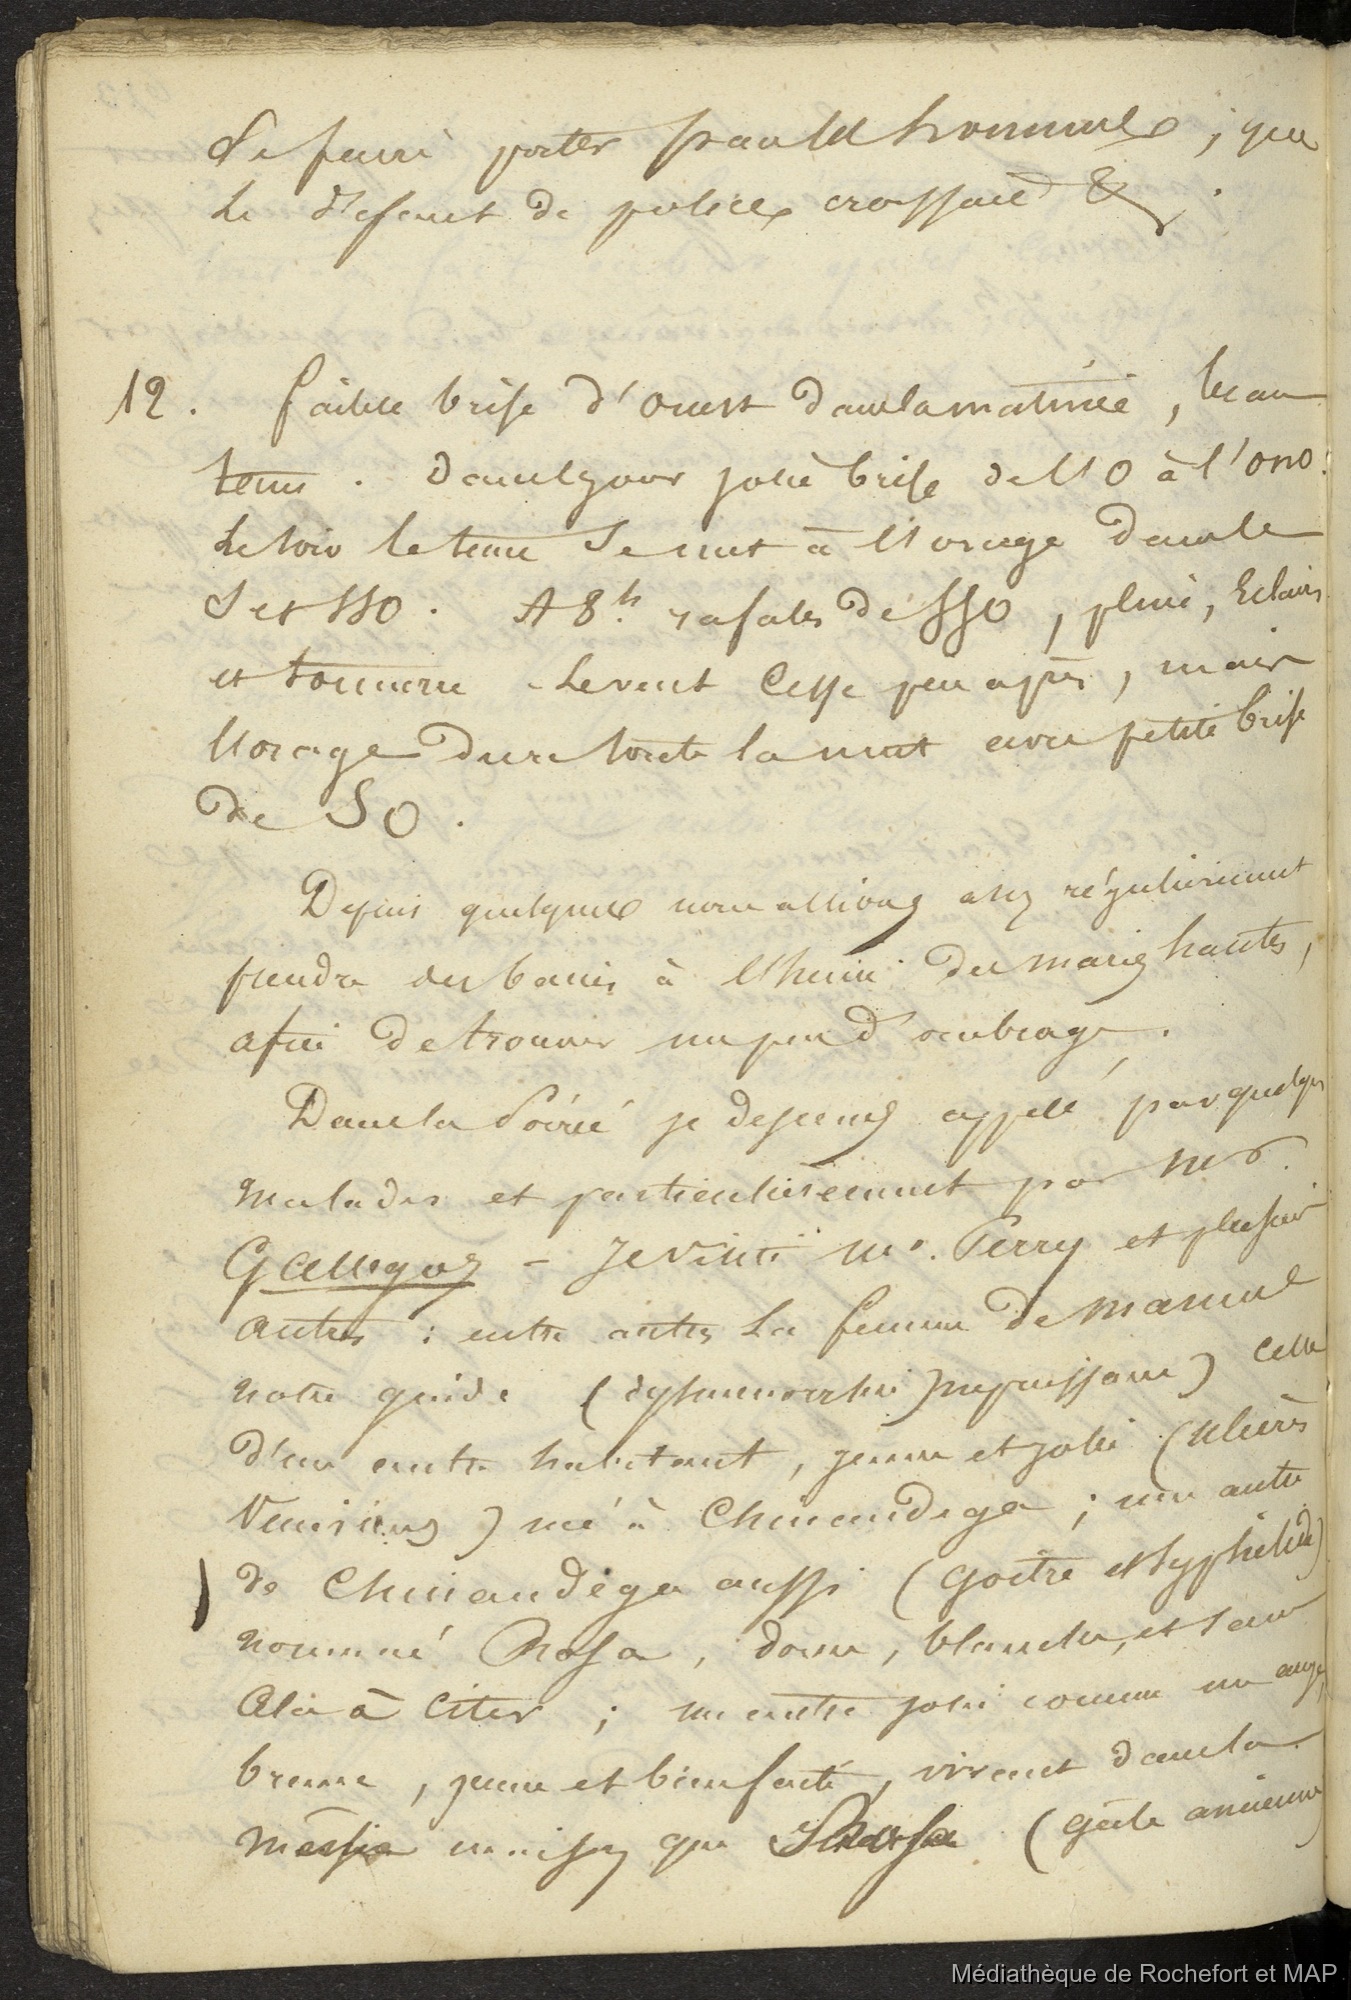 de faire porter par les hommes ; que
le défaut de police croissait &.
12. faible brise d'ouest dans la matinée, beau
tems. dans le jour jolie brise de l'O à l'ONO.
Le soir le tems se met à l'orage dans le
S et SSO. A 8.h rafales de SSO, pluie, Eclairs
et tonnerre - Le vent Cesse peu après, mais
l'orage dure toute la nuit avec petite brise
de SO.
Depuis quelques nous allions assez régulièrement
prendre des bains à l'heure des marées hautes,
afin de trouver un peu d'ombrage.
Dans la Soirée je descends appelé par quelques
malades et particulièrement par Mr.
Gallegos - Je visite Mr. Perry et plusieurs
autres : entre autres La femme de Manuel
notre guide (dysménorrhée) Celle
d'un autre habitant, jeune et jolie (ulcères
Vénériens) née à Chinandega ; une autre
de Chinandega aussi (Goître et syphilide)
nommée Rosa, bonne, blanche, et sans
Cela à citer ; une autre jolie comme un ange,
brune, jeune et bien faite, vivant dans la
même maison que Rosa (gale ancienne)
Médiathèque de Rochefort et MAP